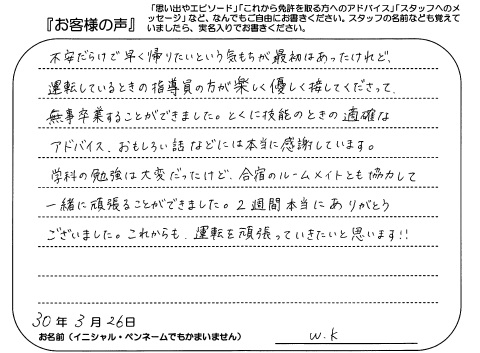 『お客様の声』
「思い出やエピソード」「これから免許を取る方へのアドバイス」「スタッフへのメ
ッセージ」など、なんでもご自由にお書きください。スタッフの名前なども覚えて
いましたら、実名入りでお書きください。
不安だらけで早く帰りたいという気もちが最初はあったけれど、
運転しているときの指導員の方が楽しく優しく接してくださって、
無事卒業することができました。とくに技能のときの適確な
アドバイス、おもしろい話などには本当に感謝しています。
学科の勉強は大変だったけど、合宿のルームメイトとも協力して
一緒に頑張ることができました。2週間本当にありがとう
ございました。これからも、運転を頑張っていきたいと思います!!
30年3月26日
お名前（イニシャル・ペンネームでもかまいません）
W.K